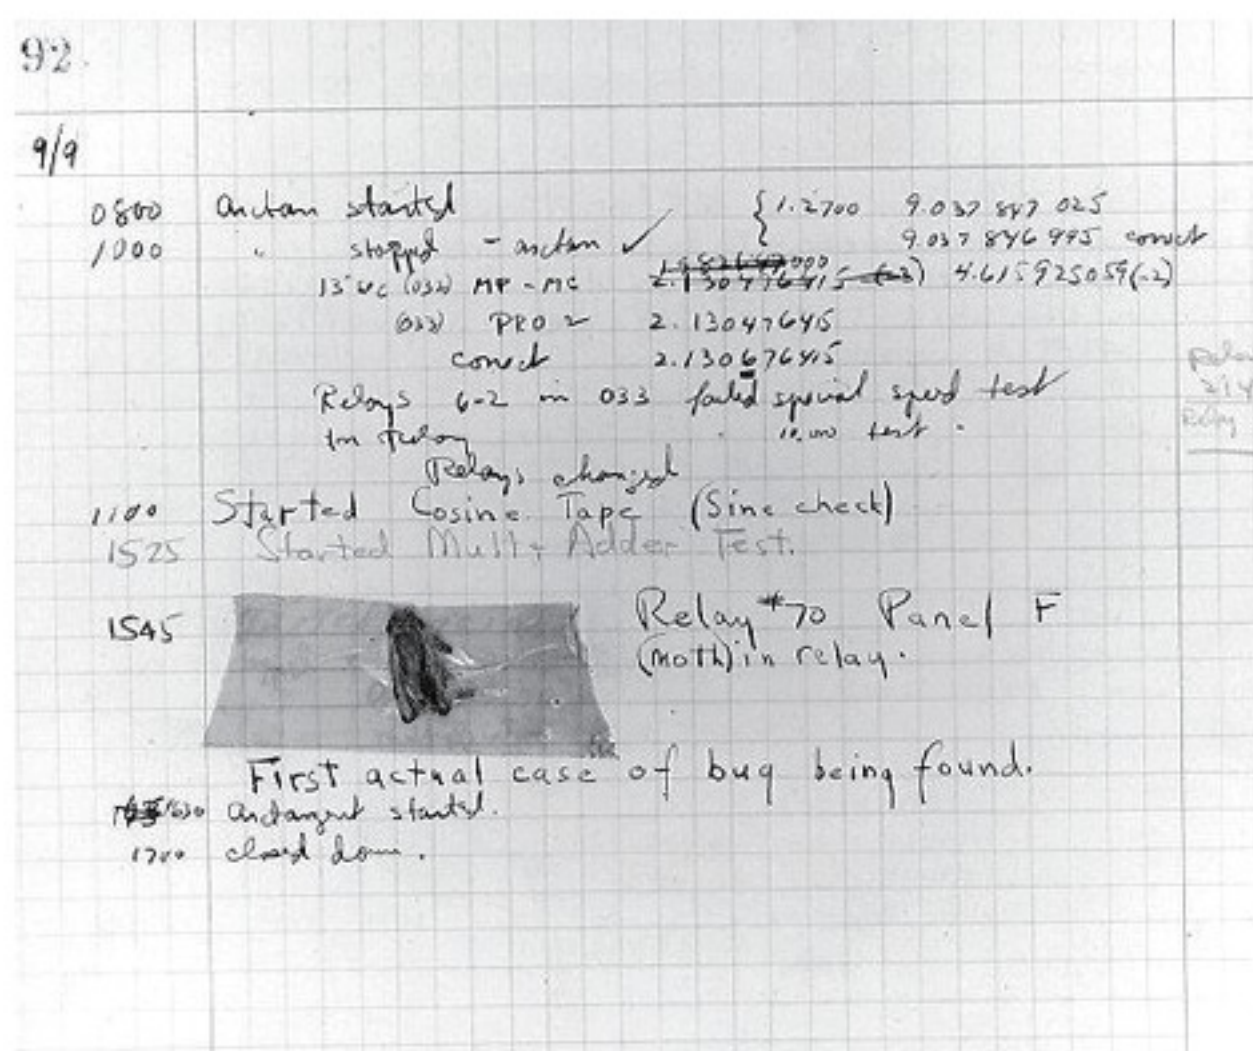 92
9/9
0800 Antan started { 1.2700 9.037 847 025
1000 " stopped - antan ✓ 9.037 846 995 correct
13"uc (032) MP-MC 2.130476415 (-3) 4.615925059(-2)
(033) PRO 2 2.130476415
correct 2.130676415
Relays 6-2 in 033 failed special speed test
In relay 10.000 test.
Relays changed
Relay
214
Relay
1100 Started Cosine Tape (Sine check)
1525 Started Mult+Adder Test.
1545 Relay #70 Panel F
(moth) in relay.
First actual case of bug being found.
1630 antangent started.
1700 closed down.